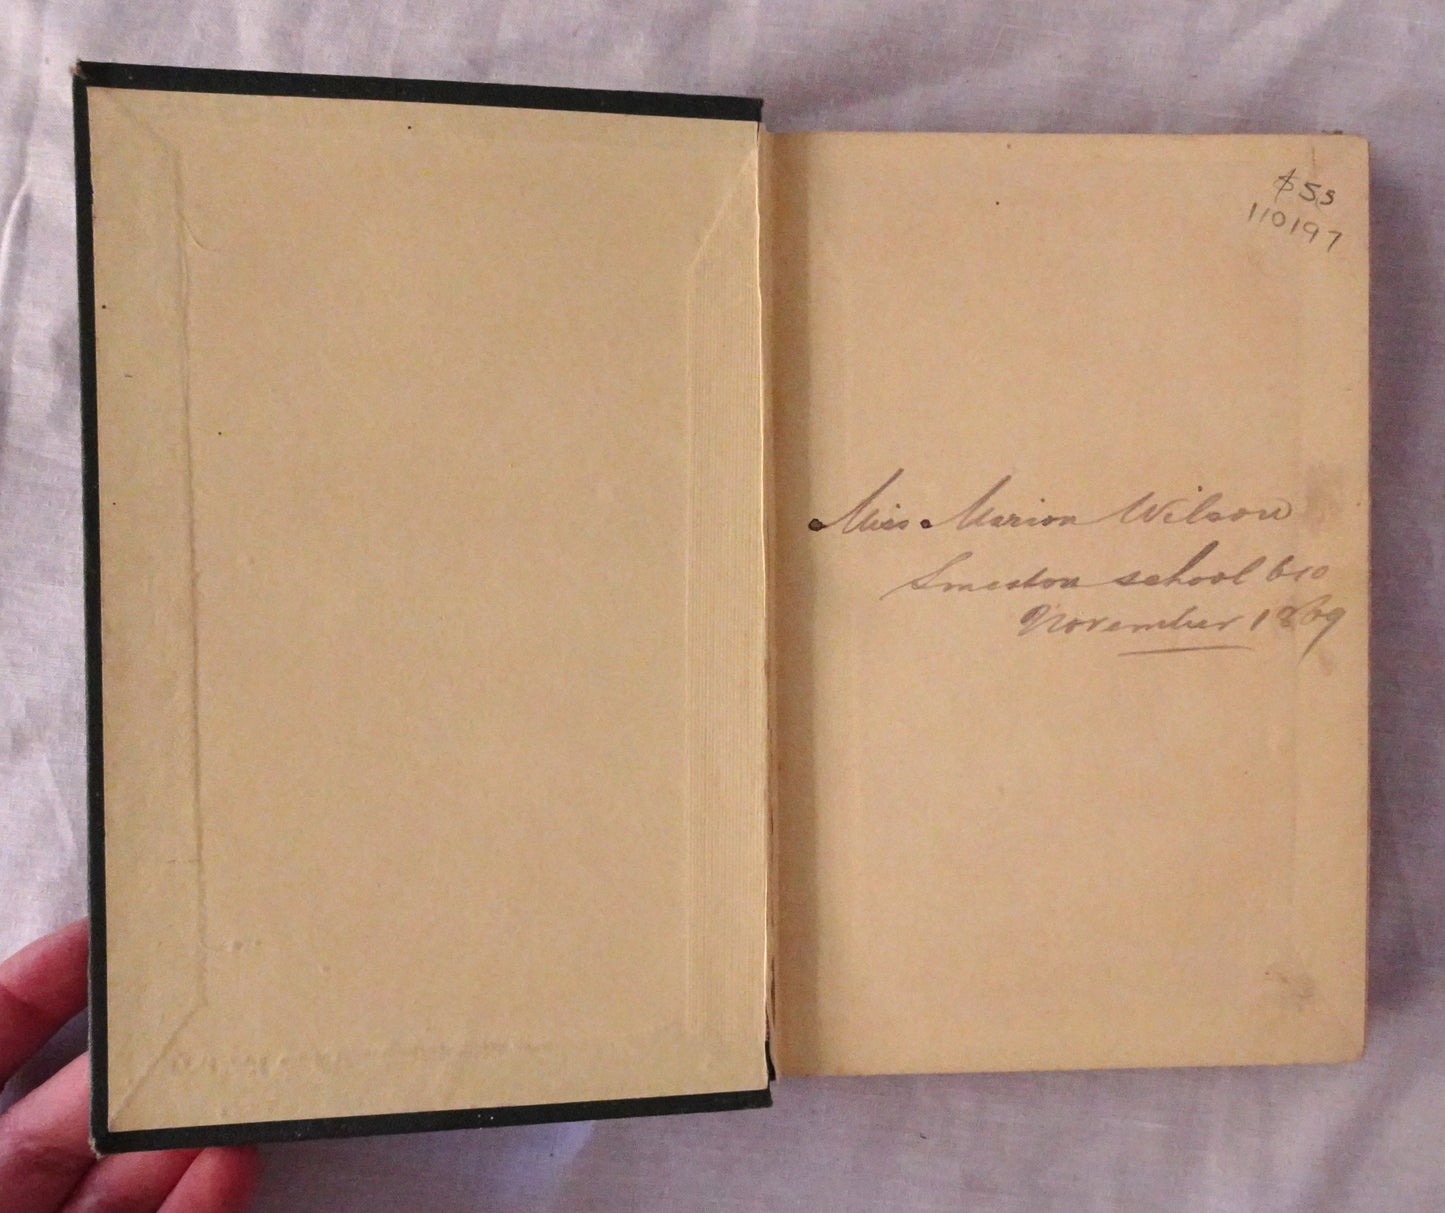 $55
110197
Miss Marion Wilson
Smeaton school 610
November 1869